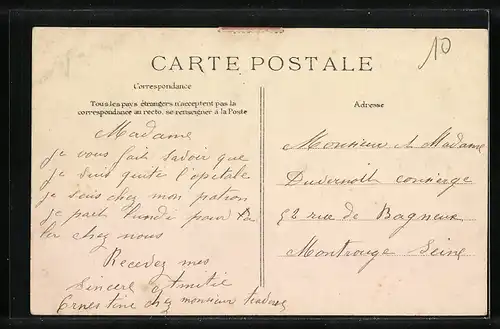 10
CARTE POSTALE
Correspondance
Tous les pays étrangers n'acceptent pas la
correspondance au recto, se renseigner à la Poste
Adresse
Madame
je vous fait savoir que
je suis quité l'opitale
je suis chez mon patron
je part lundi pour
la chez nous
Recevez mes
Sincere Amitié
Ernestine chez monsieur
Monsieur et Madame
Duvernoit concierge
52 rue de Bagneux
Montrouge Seine